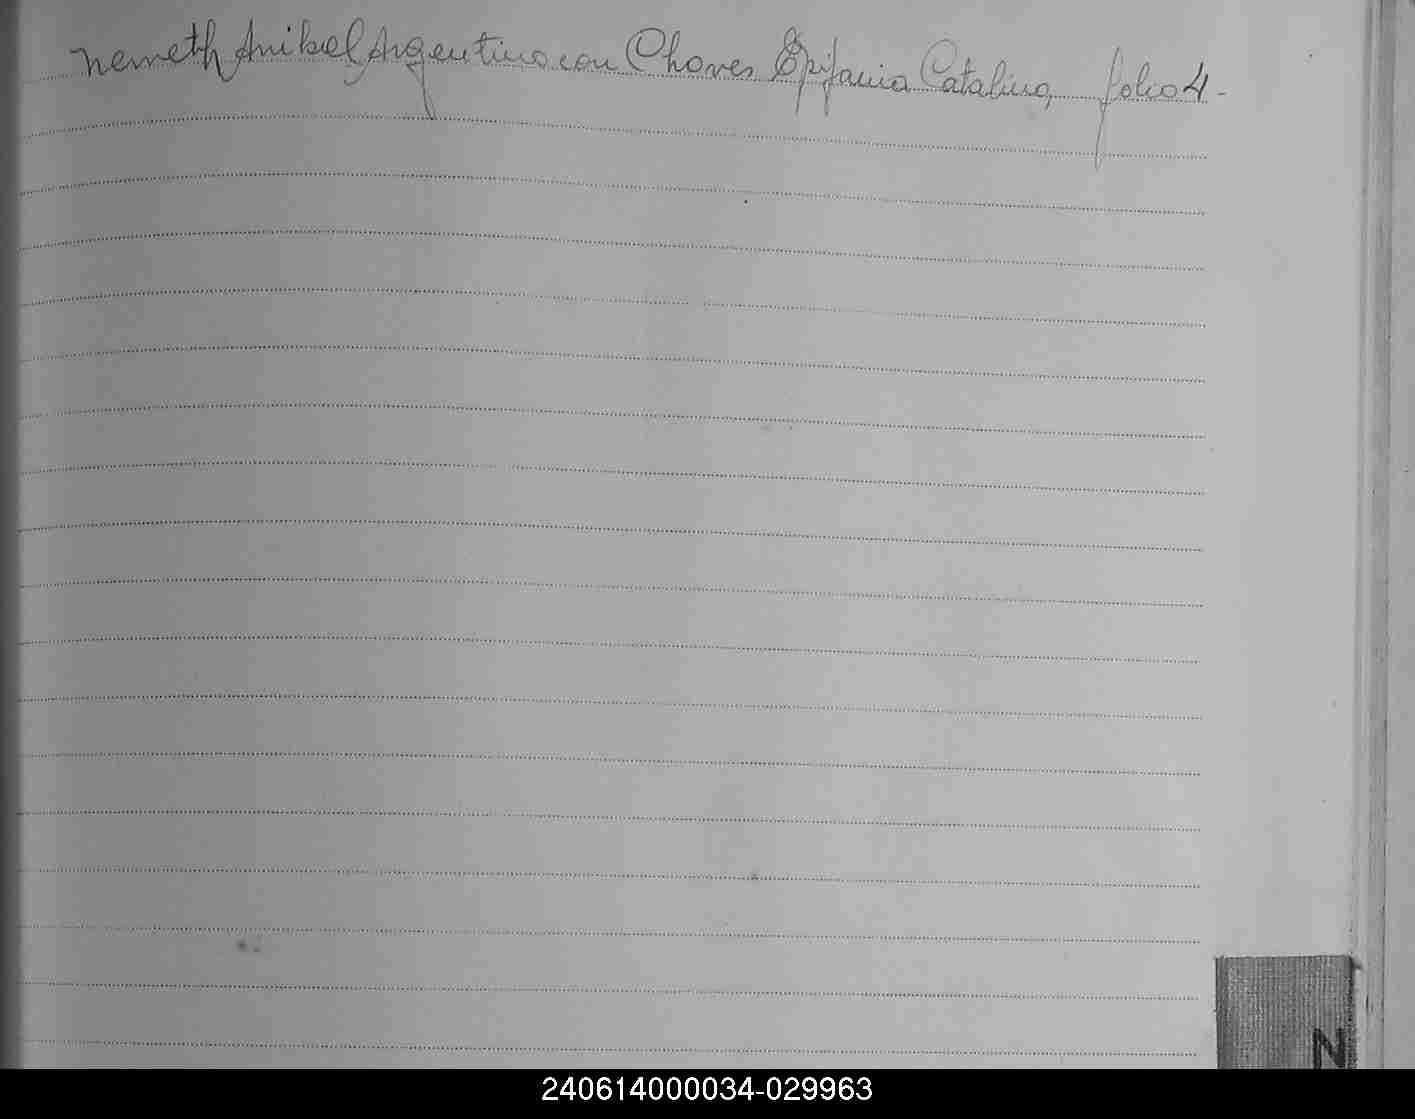 Nemeth Anibal Argentino con Chaves Epifania Catalina, folio 4-
N
240614000034-029963